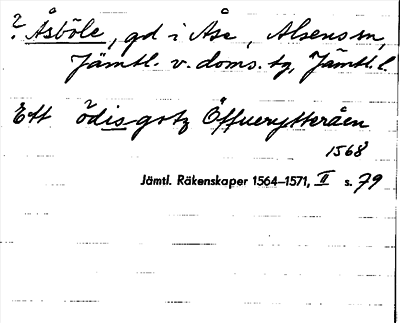 ? Åsböle, gd i Åse, Alsens sn,
Jämtl. v. doms. tg, Jämtl. l.
Ett ödisgotz Öffuerytteråen
1568
Jämtl. Räkenskaper 1564–1571, II s. 79